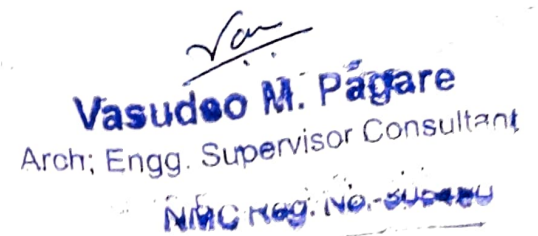 Vasudeo M. Pagare
Arch; Engg. Supervisor Consultant
NMC Reg. No.-